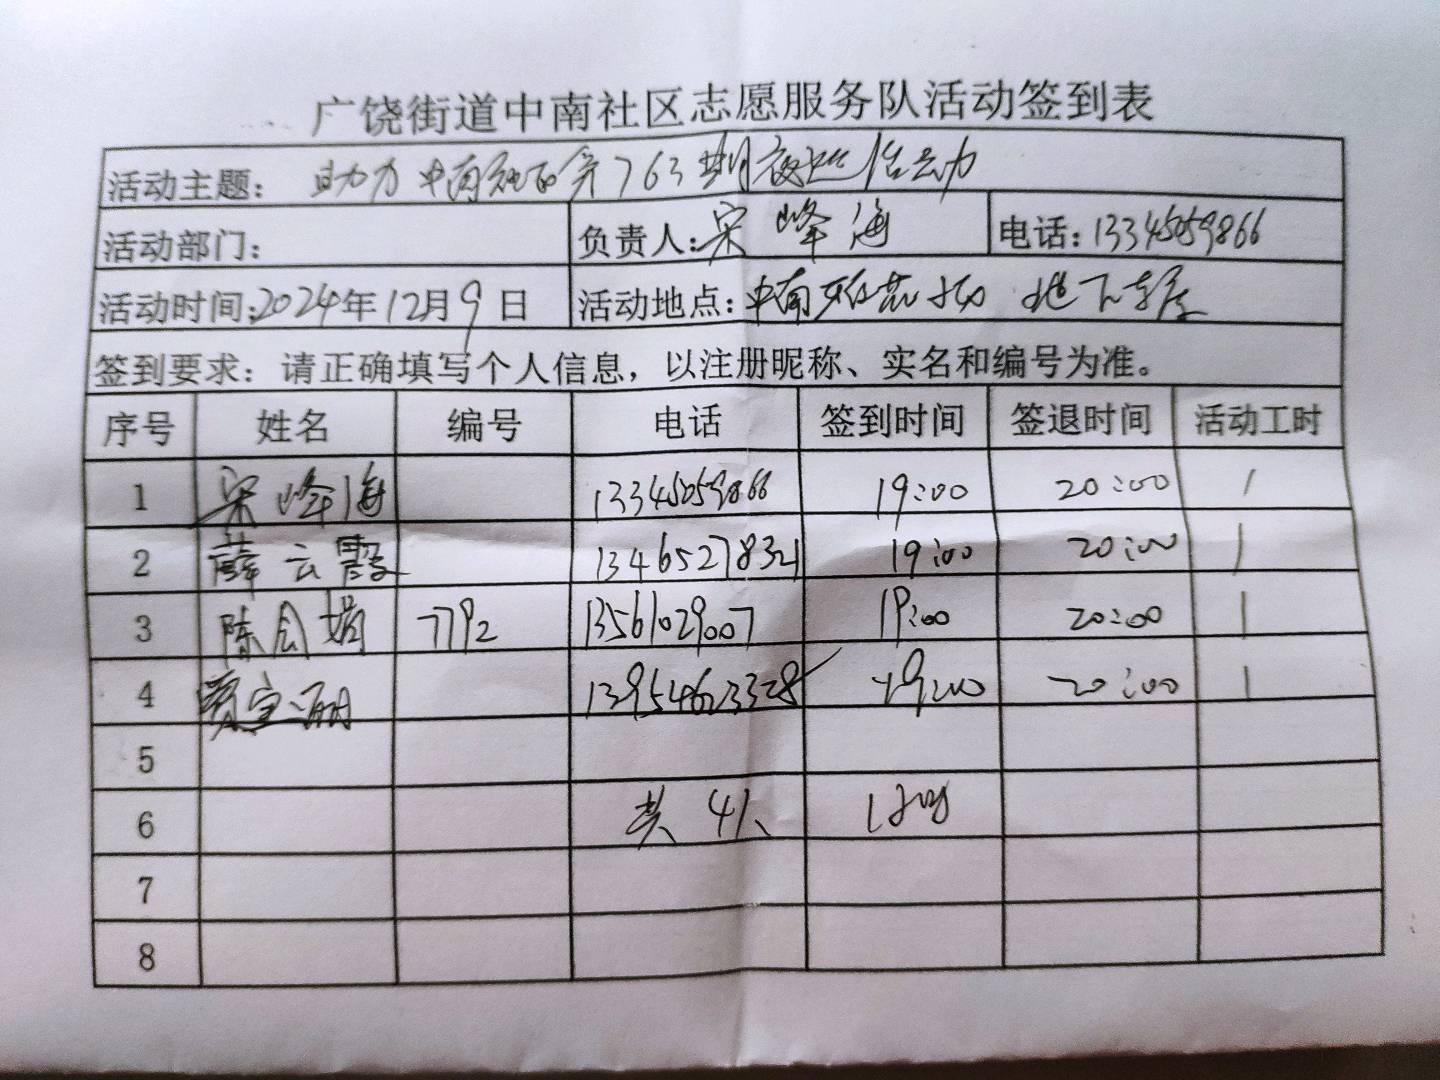 广饶街道中南社区志愿服务队活动签到表
活动主题: 助力中南社区第763期夜巡活动
活动部门: 负责人:宋峰海 电话:13345059866
活动时间:2024年12月9日 活动地点:中南 地下车库
签到要求: 请正确填写个人信息，以注册昵称、实名和编号为准。
序号 姓名 编号 电话 签到时间 签退时间 活动工时
1 宋峰海 13345059866 19:00 20:00 1
2 薛云霞 13465278321 19:00 20:00 1
3 陈会娟 7792 13561029007 19:00 20:00 1
4 贾宝丽 13954623328 19:00 20:00 1
5
6 共4人 1小时
7
8